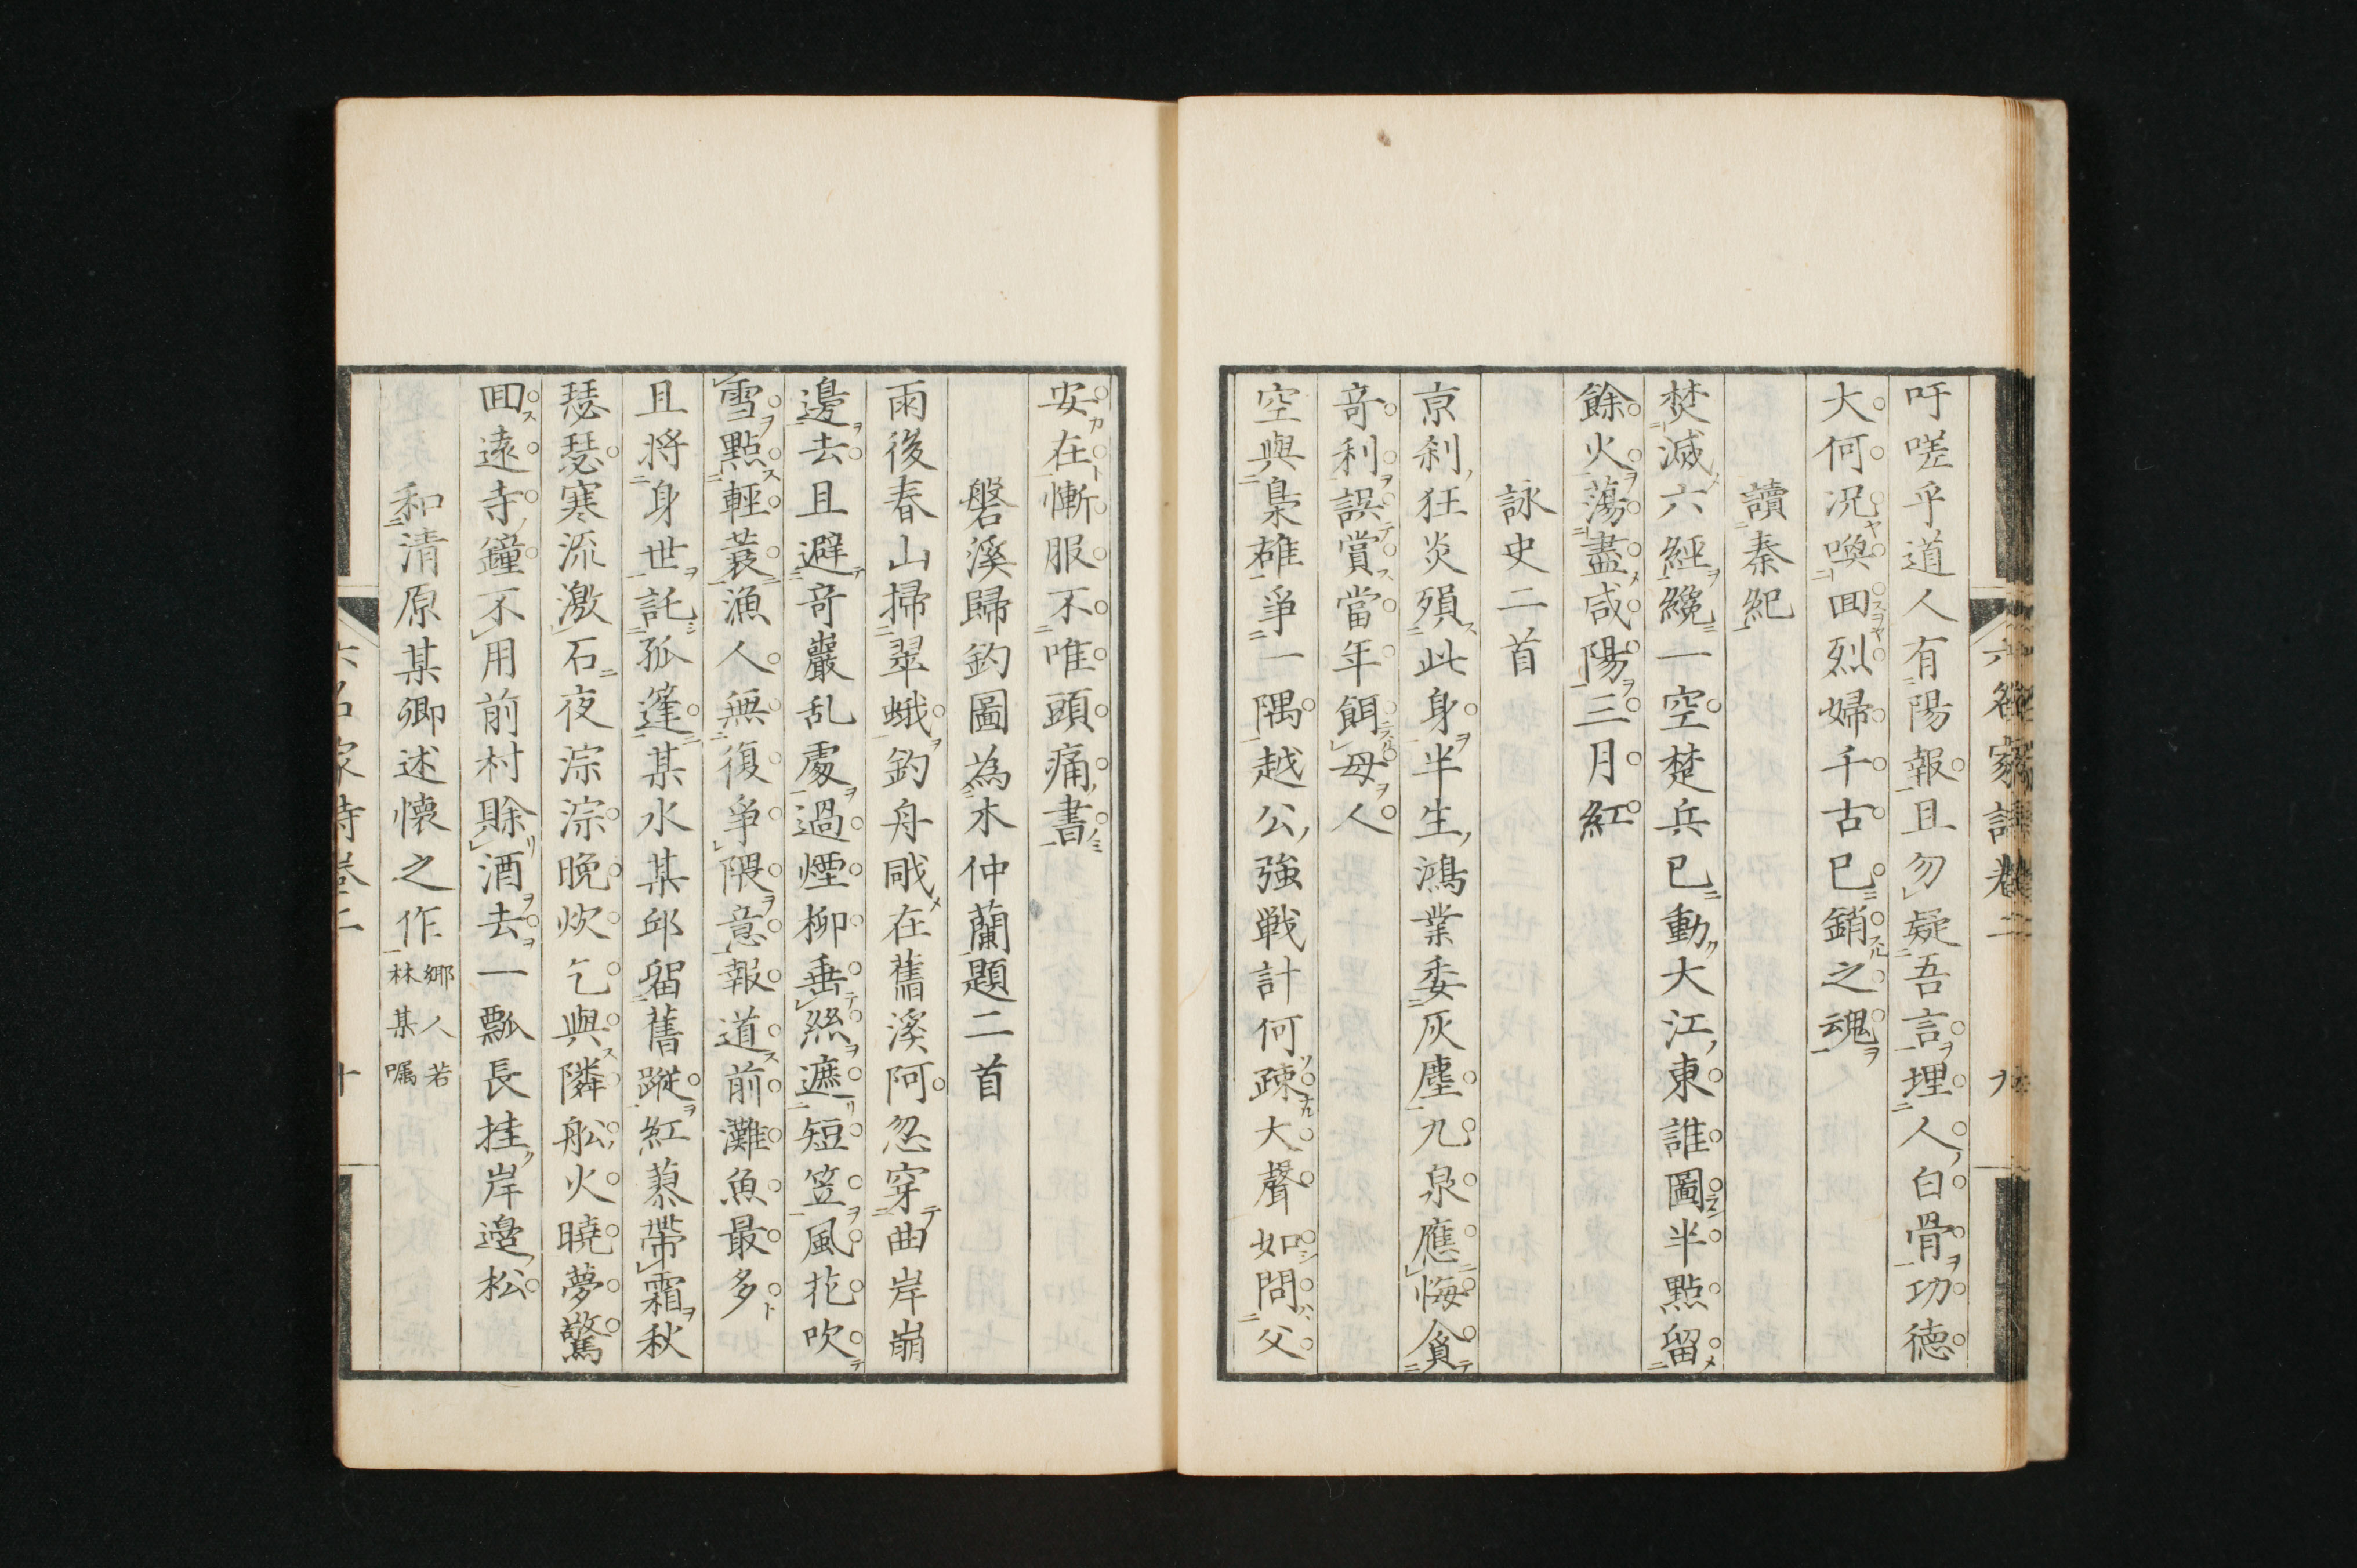 六名家詩巻二　九
吁嗟乎道人有陽報且勿疑吾言埋人白骨功德
大何况喚回烈婦千古已銷之魂
讀秦紀
焚滅六經纔一空楚兵已動大江東誰圖半點留
餘火蕩盡咸陽三月紅
詠史二首
京刹狂炎殞此身半生鴻業委灰塵九泉應悔貪
竒利誤賞當年餌母人
空與梟雄爭一隅越公強戦計何疎大聲如問父
安在慚服不唯頭痛書
磐溪歸釣圖為木仲蘭題二首
雨後春山掃翠蛾釣舟戙在舊溪阿忽穿曲岸崩
邊去且避竒巖乱處過煙柳垂絲遮短笠風花吹
雪點輕蓑漁人無復爭隈意報道前灘魚最多
且將身世託孤篷某水某邱留舊蹤紅蓼帶霜秋
瑟瑟寒流激石夜淙淙晚炊乞與隣舩火曉夢驚
回遠寺鐘不用前村賖酒去一瓢長挂岸邊松
和清原某卿述懐之作鄉人若
林某嘱
六名家詩巻二　十